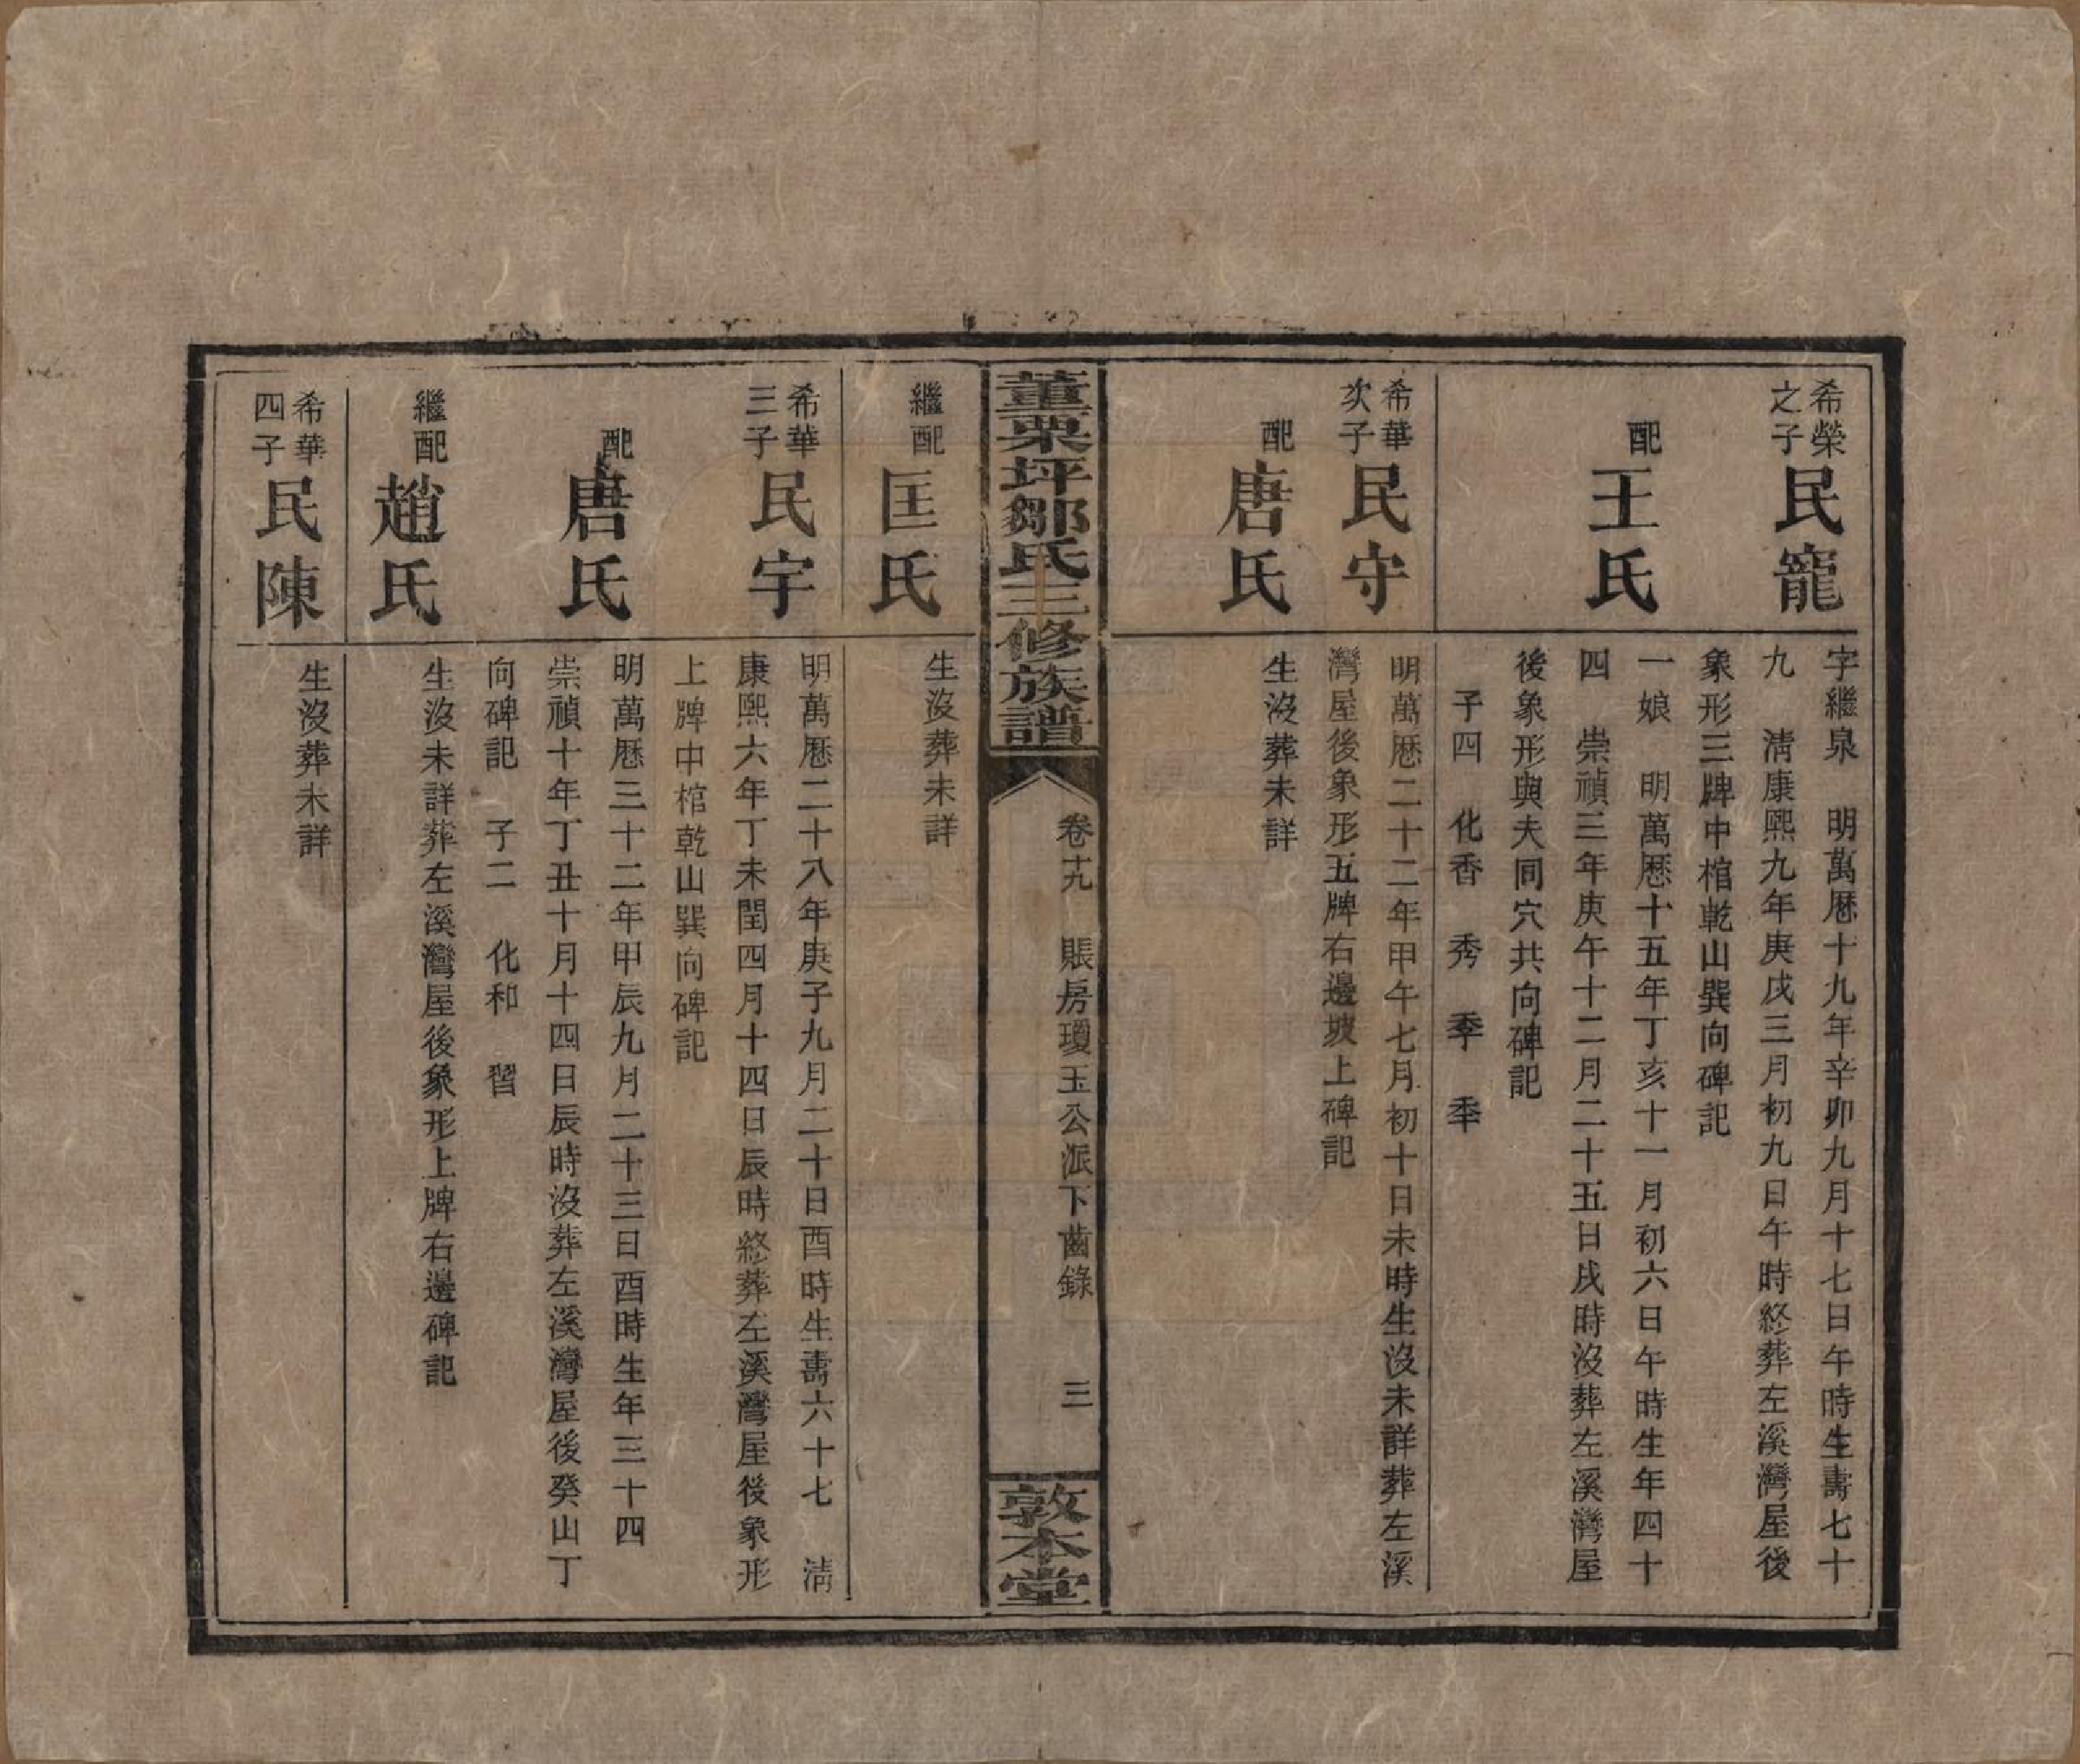 希榮
之子
民寵
字繼泉　明萬厯十九年辛卯九月十七日午時生壽七十
九　淸康熙九年庚戌三月初九日午時終葬左溪灣屋後
象形三牌中棺乾山巽向碑記
配
王氏
一娘　明萬厯十五年丁亥十一月初六日午時生年四十
四　崇禎三年庚午十二月二十五日戌時沒葬左溪灣屋
後象形與夫同穴共向碑記
子四　化香　秀　季
希華
次子
民守
明萬厯二十二年甲午七月初十日未時生沒未詳葬左溪
灣屋後象形五牌右邊坡上碑記
配
唐氏
生沒葬未詳
董栗坪鄒氏三修族譜
卷十九　賬房瓊玉公派下齒錄　三
敦本堂
繼配
匡氏
生沒葬未詳
希華
三子
民宇
明萬厯二十八年庚子九月二十日酉時生壽六十七　淸
康熙六年丁未閏四月十四日辰時終葬左溪灣屋後象形
上牌中棺乾山巽向碑記
配
唐氏
明萬厯三十二年甲辰九月二十三日酉時生年三十四
崇禎十年丁丑十月十四日辰時沒葬左溪灣屋後癸山丁
向碑記　子二　化和　習
繼配
趙氏
生沒未詳葬左溪灣屋後象形上牌右邊碑記
希華
四子
民陳
生沒葬未詳